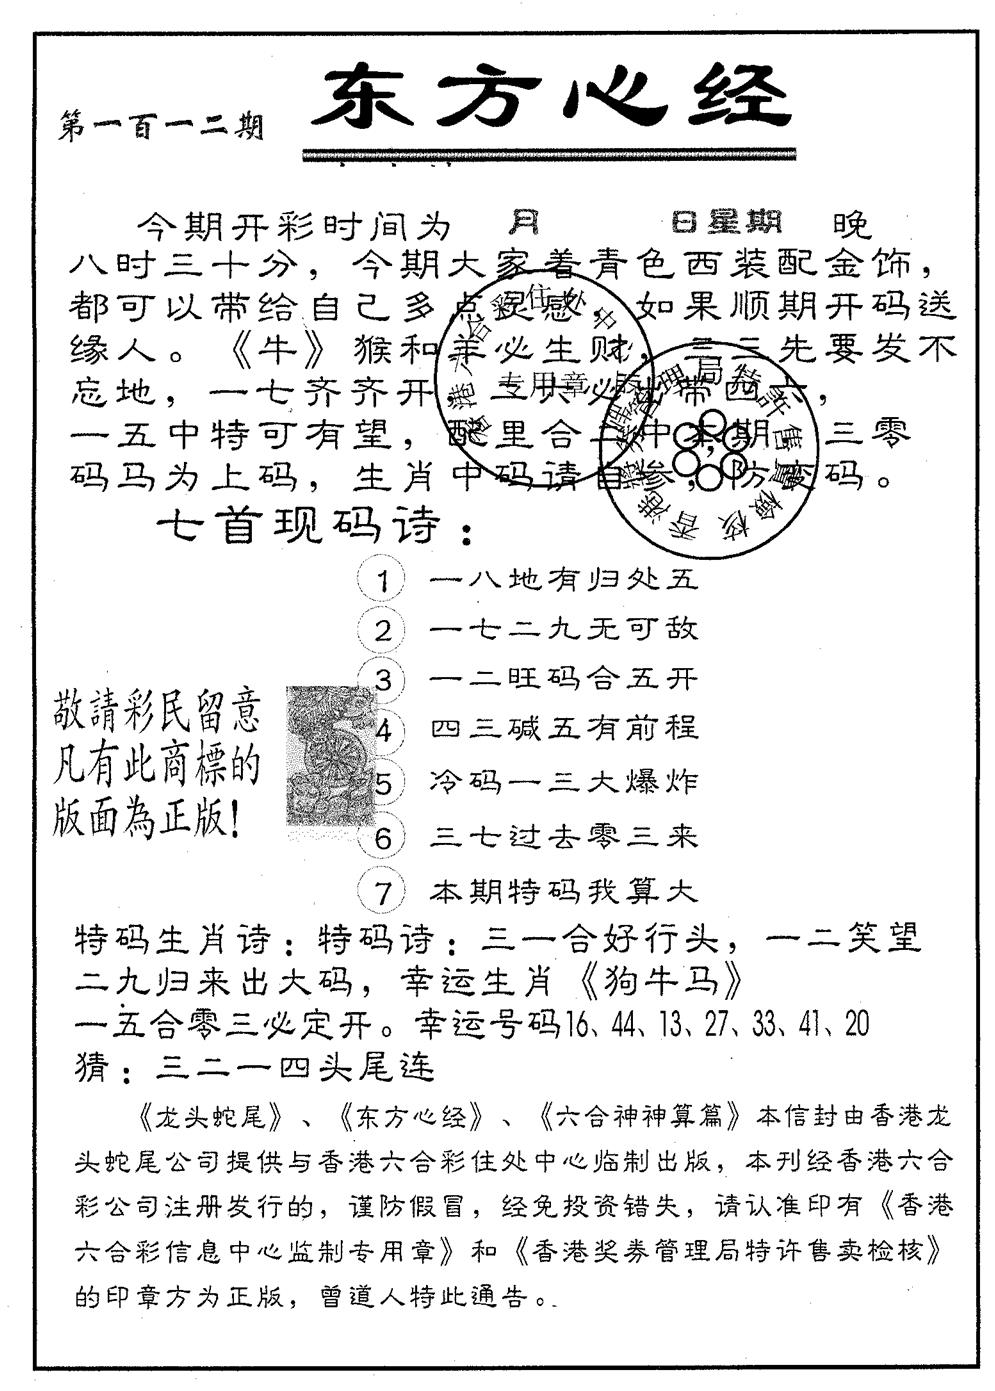 东方心经
第一百一二期
今期开彩时间为 月 日星期 晚
八时三十分，今期大家着青色西装配金饰，
都可以带给自己多点灵感。如果顺期开码送
缘人。《牛》猴和羊必生财，三三先要发不
忘地，一七齐齐开，二六必 带四六，
一五中特可有望，配里合一中本期 ，三零
码马为上码，生肖中码请自参，防 码。
香港六合彩住处中
专用章
香港奖券管理局特許售賣檢核
七首现码诗：
1 一八地有归处五
2 一七二九无可敌
3 一二旺码合五开
4 四三碱五有前程
5 冷码一三大爆炸
6 三七过去零三来
7 本期特码我算大
敬請彩民留意
凡有此商標的
版面為正版！
特码生肖诗：特码诗：三一合好行头，一二笑望
二九归来出大码，幸运生肖《狗牛马》
一五合零三必定开。幸运号码16、44、13、27、33、41、20
猜：三二一四头尾连
《龙头蛇尾》、《东方心经》、《六合神神算篇》本信封由香港龙
头蛇尾公司提供与香港六合彩住处中心临制出版，本刊经香港六合
彩公司注册发行的，谨防假冒，经免投资错失，请认准印有《香港
六合彩信息中心监制专用章》和《香港奖券管理局特许售卖检核》
的印章方为正版，曾道人特此通告。